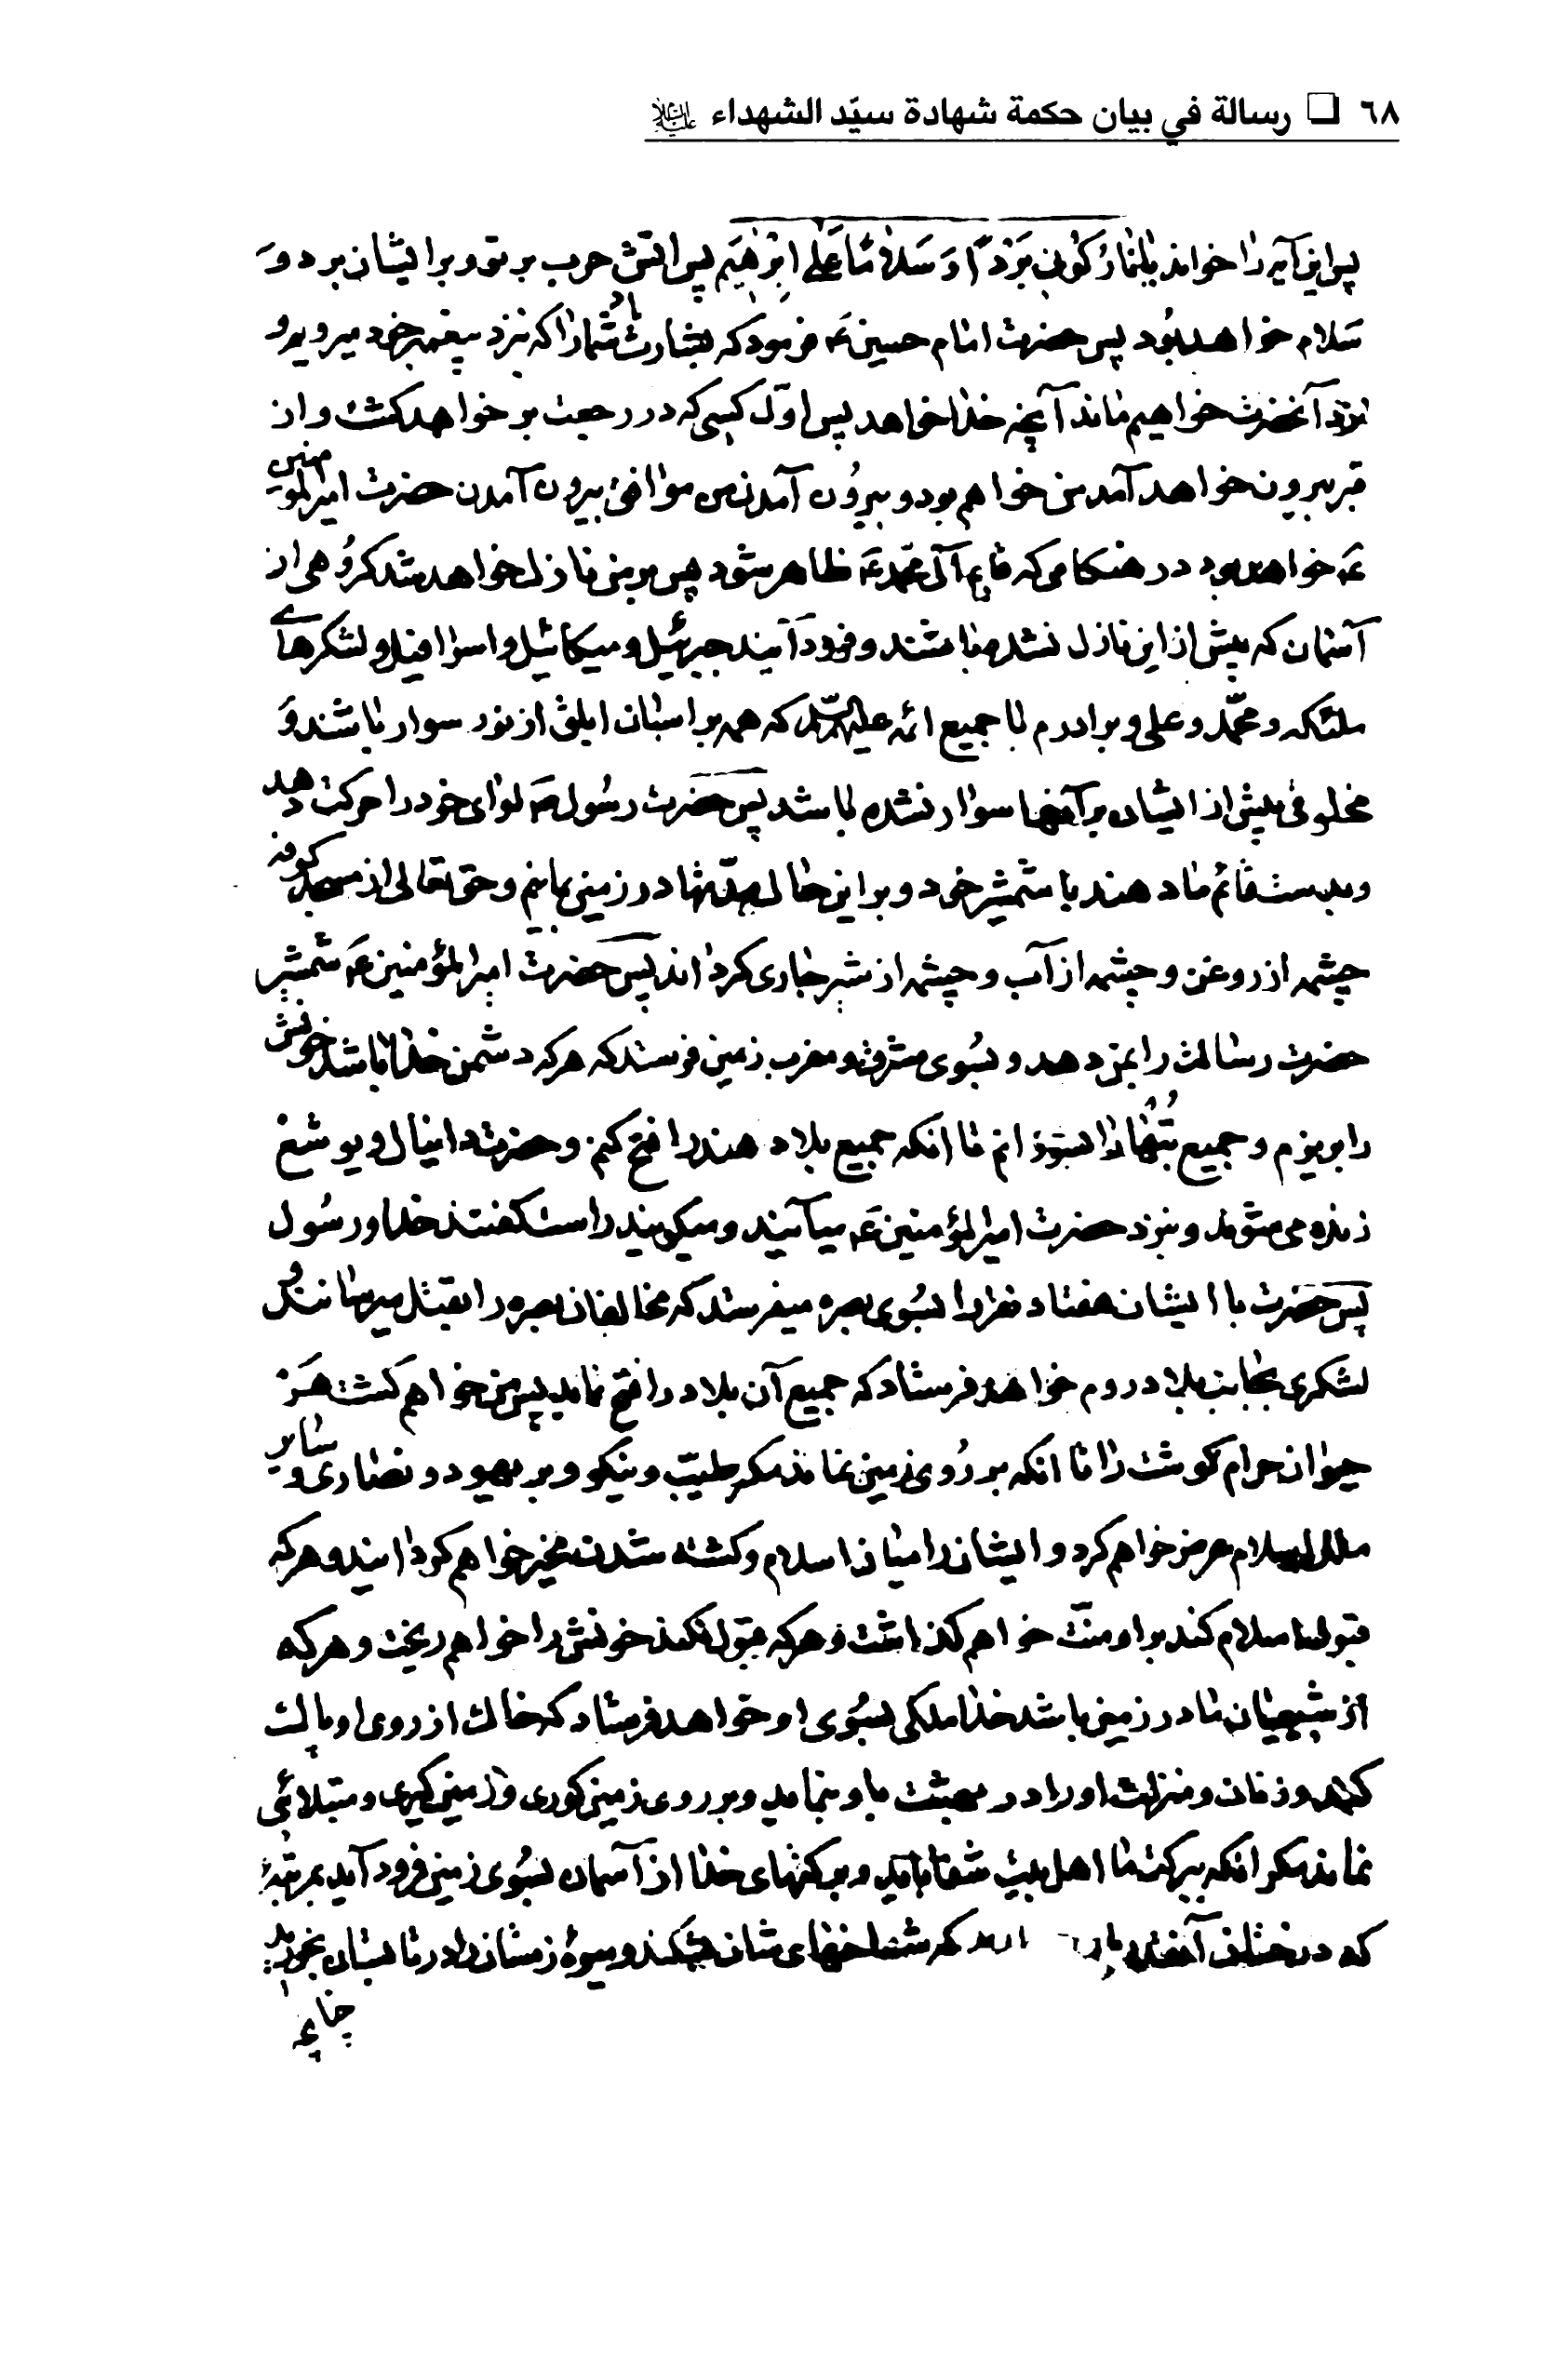 ٦٨ □ رسالة في بيان حكمة شهادة سيّد الشهداء عليه السلام
پس این آیه را خواند یا نار کونی بردًا و سلامًا علی ابرٰهیم پس آتش حرب بر تو و بر ایشان برد و
سلام خواهد بود پس حضرت امام حسین ع فرمود که بشارت باد شما را که بنزد پیغمبر خود میرویم و
نزد آنحضرت خواهیم ماند آنچه خدا خواهد پس اوّل کسی که در رجعت بر خواهد کشت و از
قبر بیرون خواهد آمد من خواهم بود و بیرون آمدن من موافق بیرون آمدن حضرت امیرالمؤمنین
ع خواهد بود در هنکامی که قایم آل محمد ع ظاهر شود پس بر من نازل خواهد شد کروهی از
آسمان که پیش از این نازل نشده باشند و فرود آیند جبرئیل و میکائیل و اسرافیل و لشکرهای
ملئکه و محمّد و علی و برادرم با جمیع ائمه علیهم السلام که همه بر اسبان ابلق از نور سوار باشند و
مخلوقی پیش از ایشان بر آنها سوار نشده باشد پس حضرت رسول ص لوای خود را حرکت دهد
و بدست قائم ما دهند با شمشیر خود و بر این حال مدّتها در زمین بمانیم و حق تعالی از مسجد کوفه
چشمه از روغن و چشمه از آب و چشمه از شیر جاری کرداند پس حضرت امیرالمؤمنین ع شمشیر
حضرت رسالت را بمن دهد و بسوی مشرق و مغرب زمین فرستد که هر که دشمن خدا باشد خونش
را بریزم و جمیع بتها را بسوزانم تا انکه جمیع بلاد هند را فتح کنم و حضرت دانیال و یوشع
زنده می شوند و بنزد حضرت امیرالمؤمنین ع میآیند و میکویند راست کفتند خدا و رسول
پس حضرت با ایشان هفتاد نفر را بسوی بصره میفرستد که مخالفان بصره را بقتل میرسانند و
لشکری بجانب بلاد روم خواهد فرستاد که جمیع آن بلاد را فتح نماید پس من خواهم کشت هر
حیوان حرام کوشت را تا انکه بر روی زمین نماند مکر طیّب و نیکو و بر یهود و نصاری و سایر
ملل اسلام عرض خواهم کرد و ایشان را میان اسلام و کشته شدن مخیر خواهم کردانید و هر که
قبول اسلام کند بر او منّت خواهم کذاشت و هر که قبول نکند خونش را خواهم ریخت و هر که
از شیعیان ما در زمین باشد خدا ملکی بسوی او خواهد فرستاد که خاک از روی او پاک
کند و زنان و منزلت او را در بهشت باو بنماید و بر روی زمین کوری و زمین کیری و مبتلائی
نماند مکر انکه ببرکت ما اهل بیت شفا یابد و برکتهای خدا از آسمان بسوی زمین فرود آید بمرتبهٔ
که درختان آنقدر بار که شاخهای شان بشکند و میوهٔ زمستان را در تابستان بخورند
چنانچه